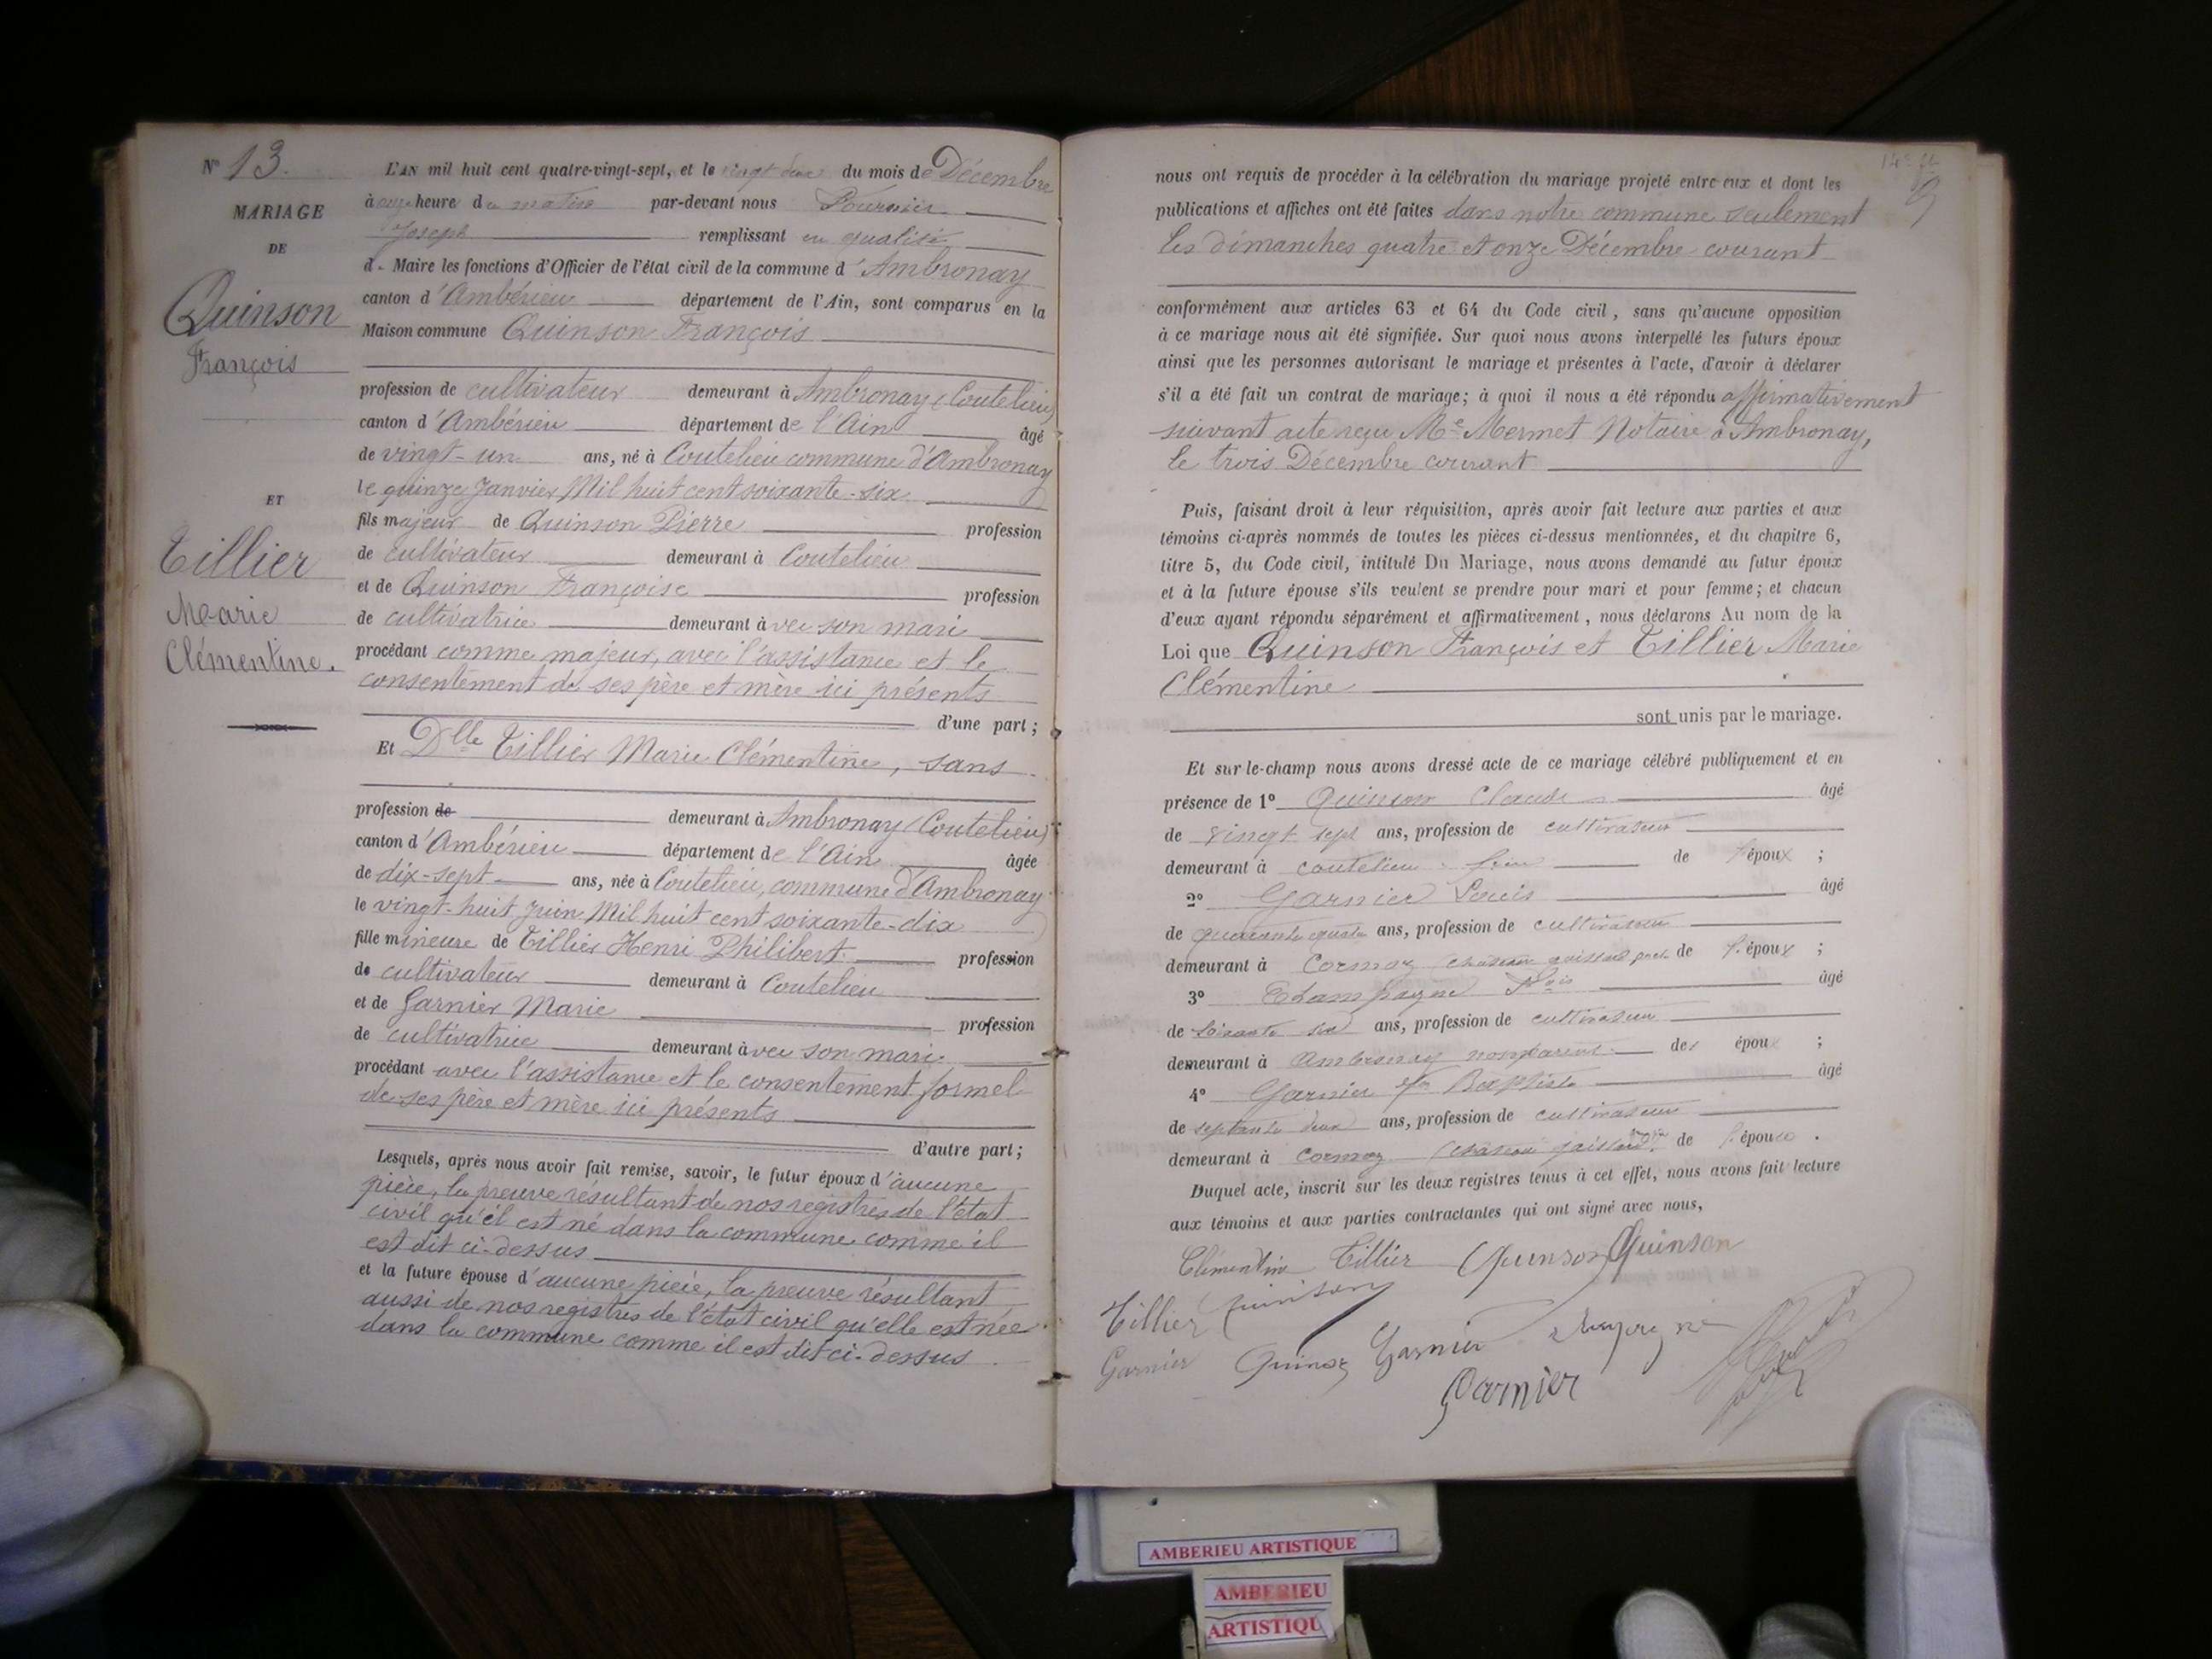 Nº 13.
MARIAGE
DE
Quinson
François
ET
Tillier
Marie
Clémentine.
L'AN mil huit cent quatre-vingt-sept, et le vingt deux du mois de Décembre
à onze heure du matin par-devant nous Fournier
Joseph remplissant en qualité
d. Maire les fonctions d'Officier de l'état civil de la commune d'Ambronay
canton d'Ambérieu département de l'Ain, sont comparus en la
Maison commune Quinson François
profession de cultivateur demeurant à Ambronay (Coutelieu)
canton d'Ambérieu département de l'Ain âgé
de vingt-un ans, né à Coutelieu commune d'Ambronay
le quinze Janvier Mil huit cent soixante-six
fils majeur de Quinson Pierre profession
de cultivateur demeurant à Coutelieu
et de Quinson Françoise profession
de cultivatrice demeurant avec son mari
procédant comme majeur, avec l'assistance et le
consentement de ses père et mère ici présents
d'une part;
Et Dlle Tillier Marie Clémentine, sans
profession de demeurant à Ambronay (Coutelieu)
canton d'Ambérieu département de l'Ain âgée
de dix-sept ans, née à Coutelieu, commune d'Ambronay
le vingt-huit Juin Mil huit cent soixante-dix
fille mineure de Tillier Henri Philibert profession
de cultivateur demeurant à Coutelieu
et de Garnier Marie profession
de cultivatrice demeurant avec son mari
procédant avec l'assistance et le consentement formel
de ses père et mère ici présents
d'autre part;
Lesquels, après nous avoir fait remise, savoir, le futur époux d'aucune
pièce, la preuve résultant de nos registres de l'état
civil qu'il est né dans la commune comme il
est dit ci-dessus
et la future épouse d'aucune pièce, la preuve résultant
aussi de nos registres de l'état civil qu'elle est née
dans la commune comme il est dit ci-dessus
nous ont requis de procéder à la célébration du mariage projeté entre eux et dont les
publications et affiches ont été faites dans notre commune seulement
les dimanches quatre et onze Décembre courant
conformément aux articles 63 et 64 du Code civil, sans qu'aucune opposition
à ce mariage nous ait été signifiée. Sur quoi nous avons interpellé les futurs époux
ainsi que les personnes autorisant le mariage et présentes à l'acte, d'avoir à déclarer
s'il a été fait un contrat de mariage; à quoi il nous a été répondu affirmativement
suivant acte reçu Me Mermet Notaire à Ambronay,
le trois Décembre courant
Puis, faisant droit à leur réquisition, après avoir fait lecture aux parties et aux
témoins ci-après nommés de toutes les pièces ci-dessus mentionnées, et du chapitre 6,
titre 5, du Code civil, intitulé Du Mariage, nous avons demandé au futur époux
et à la future épouse s'ils veulent se prendre pour mari et pour femme; et chacun
d'eux ayant répondu séparément et affirmativement, nous déclarons Au nom de la
Loi que Quinson François et Tillier Marie
Clémentine
sont unis par le mariage.
Et sur-le-champ nous avons dressé acte de ce mariage célébré publiquement et en
présence de 1º Quinson Claude âgé
de vingt sept ans, profession de cultivateur
demeurant à coutelieu frère de l'époux ;
2º Garnier Louis âgé
de quarante quatre ans, profession de cultivateur
demeurant à Cormoz de l'époux ;
3º Champagne âgé
de soixante six ans, profession de cultivateur
demeurant à Ambronay non parent des époux ;
4º Garnier Jn Baptiste âgé
de septante deux ans, profession de cultivateur
demeurant à Cormoz de l'épouse .
Duquel acte, inscrit sur les deux registres tenus à cet effet, nous avons fait lecture
aux témoins et aux parties contractantes qui ont signé avec nous,
Clémentine Tillier Quinson Quinson
Tillier Quinson
Garnier Quinson Garnier
Garnier
AMBERIEU ARTISTIQUE
AMBERIEU
ARTISTIQU